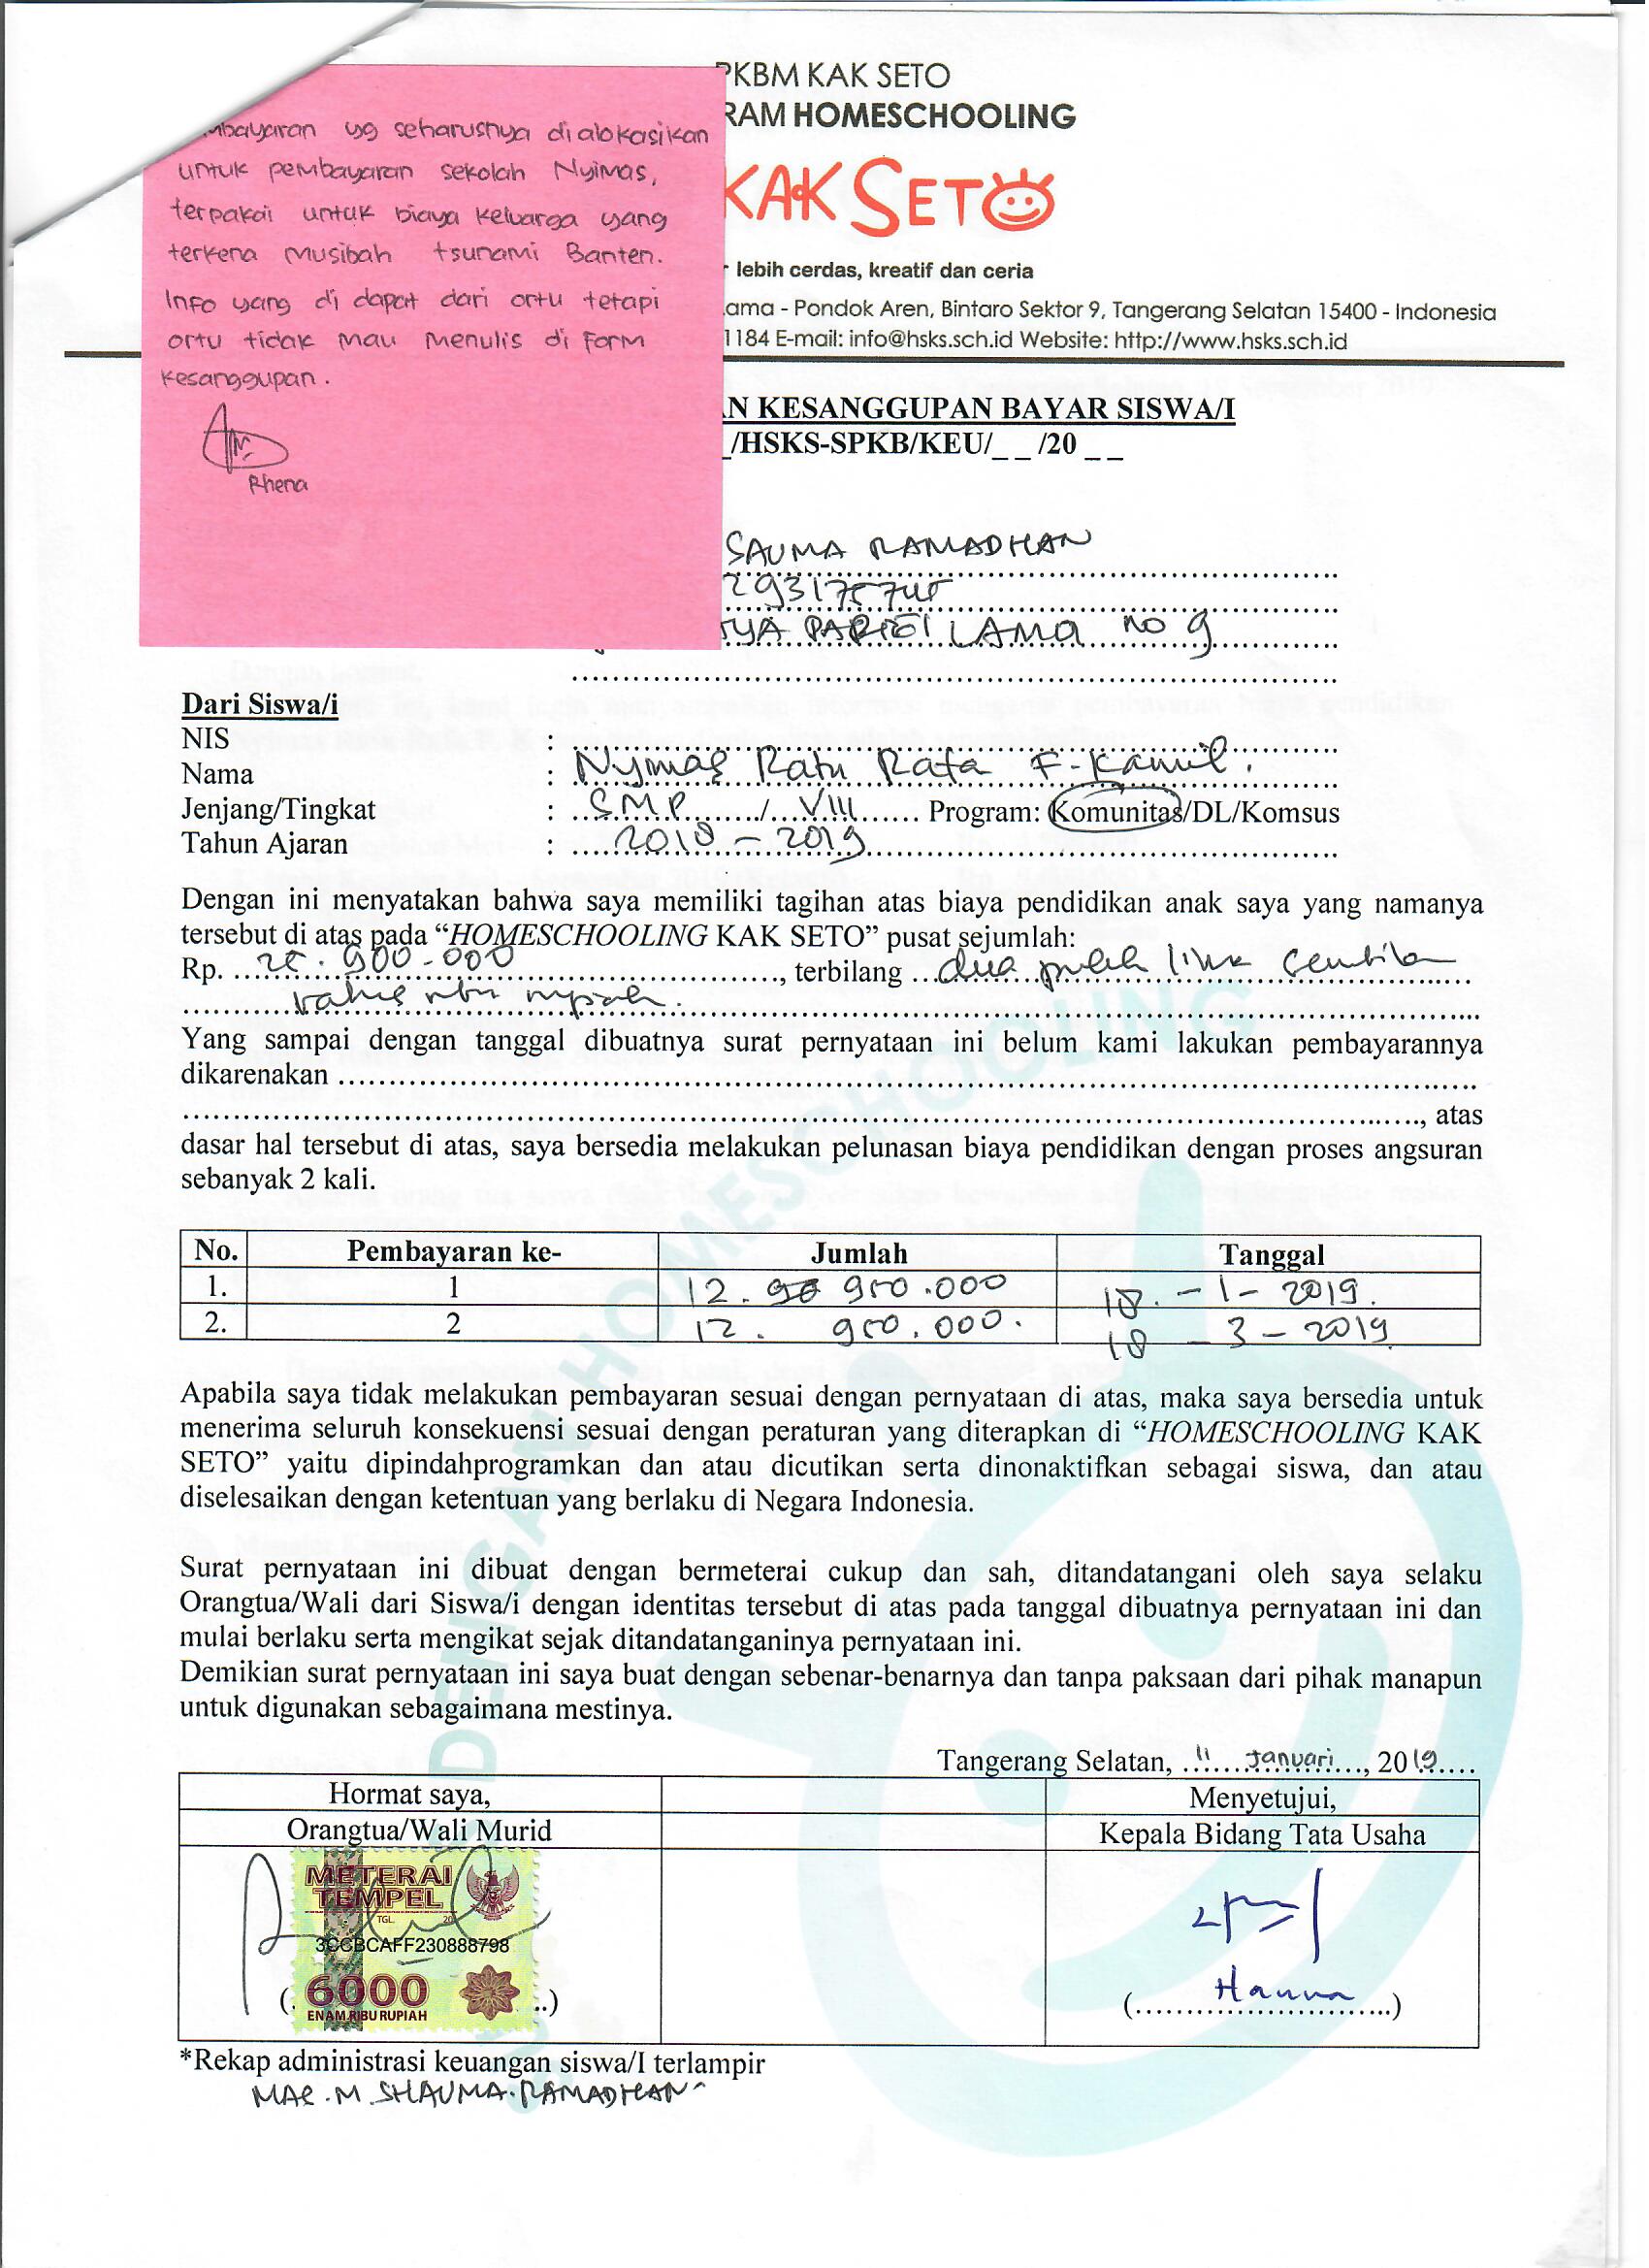 PKBM KAK SETO
RAM HOMESCHOOLING
KAK SETO
lebih cerdas, kreatif dan ceria
ama - Pondok Aren, Bintaro Sektor 9, Tangerang Selatan 15400 - Indonesia
1184 E-mail: info@hsks.sch.id Website: http://www.hsks.sch.id
mbayaran yg seharusnya di alokasikan
untuk pembayaran sekolah Nyimas,
terpakai untuk biaya keluarga yang
terkena musibah tsunami Banten.
Info yang di dapat dari ortu tetapi
ortu tidak mau menulis di form
kesanggupan.
Rhena
AN KESANGGUPAN BAYAR SISWA/I
_/HSKS-SPKB/KEU/_ _ /20 _ _
SAUMA RAMADHAN
YA PARIGI LAMA no 9
Dari Siswa/i
NIS :
Nama : Nyimas Ratu Rafa F. Kamil.
Jenjang/Tingkat : SMP / VIII Program: Komunitas/DL/Komsus
Tahun Ajaran : 2018 - 2019
Dengan ini menyatakan bahwa saya memiliki tagihan atas biaya pendidikan anak saya yang namanya
tersebut di atas pada “HOMESCHOOLING KAK SETO” pusat sejumlah:
Rp. 25.900.000, terbilang dua puluh lima sembilan
ratus ribu rupiah.
Yang sampai dengan tanggal dibuatnya surat pernyataan ini belum kami lakukan pembayarannya
dikarenakan
, atas
dasar hal tersebut di atas, saya bersedia melakukan pelunasan biaya pendidikan dengan proses angsuran
sebanyak 2 kali.
No. Pembayaran ke- Jumlah Tanggal
1. 1 12. 950.000 18 - 1 - 2019.
2. 2 12. 950.000. 18 - 3 - 2019
Apabila saya tidak melakukan pembayaran sesuai dengan pernyataan di atas, maka saya bersedia untuk
menerima seluruh konsekuensi sesuai dengan peraturan yang diterapkan di “HOMESCHOOLING KAK
SETO” yaitu dipindahprogramkan dan atau dicutikan serta dinonaktifkan sebagai siswa, dan atau
diselesaikan dengan ketentuan yang berlaku di Negara Indonesia.
Surat pernyataan ini dibuat dengan bermeterai cukup dan sah, ditandatangani oleh saya selaku
Orangtua/Wali dari Siswa/i dengan identitas tersebut di atas pada tanggal dibuatnya pernyataan ini dan
mulai berlaku serta mengikat sejak ditandatanganinya pernyataan ini.
Demikian surat pernyataan ini saya buat dengan sebenar-benarnya dan tanpa paksaan dari pihak manapun
untuk digunakan sebagaimana mestinya.
Tangerang Selatan, 11 Januari, 2019
Hormat saya, Menyetujui,
Orangtua/Wali Murid Kepala Bidang Tata Usaha
METERAI
TEMPEL
TGL. 20
3CCBCAFF230888798
6000
ENAM RIBU RUPIAH
Hanna
*Rekap administrasi keuangan siswa/I terlampir
MAS.M.SHAUMA.RAMADHAN
DENGAN HOMESCHOOLING